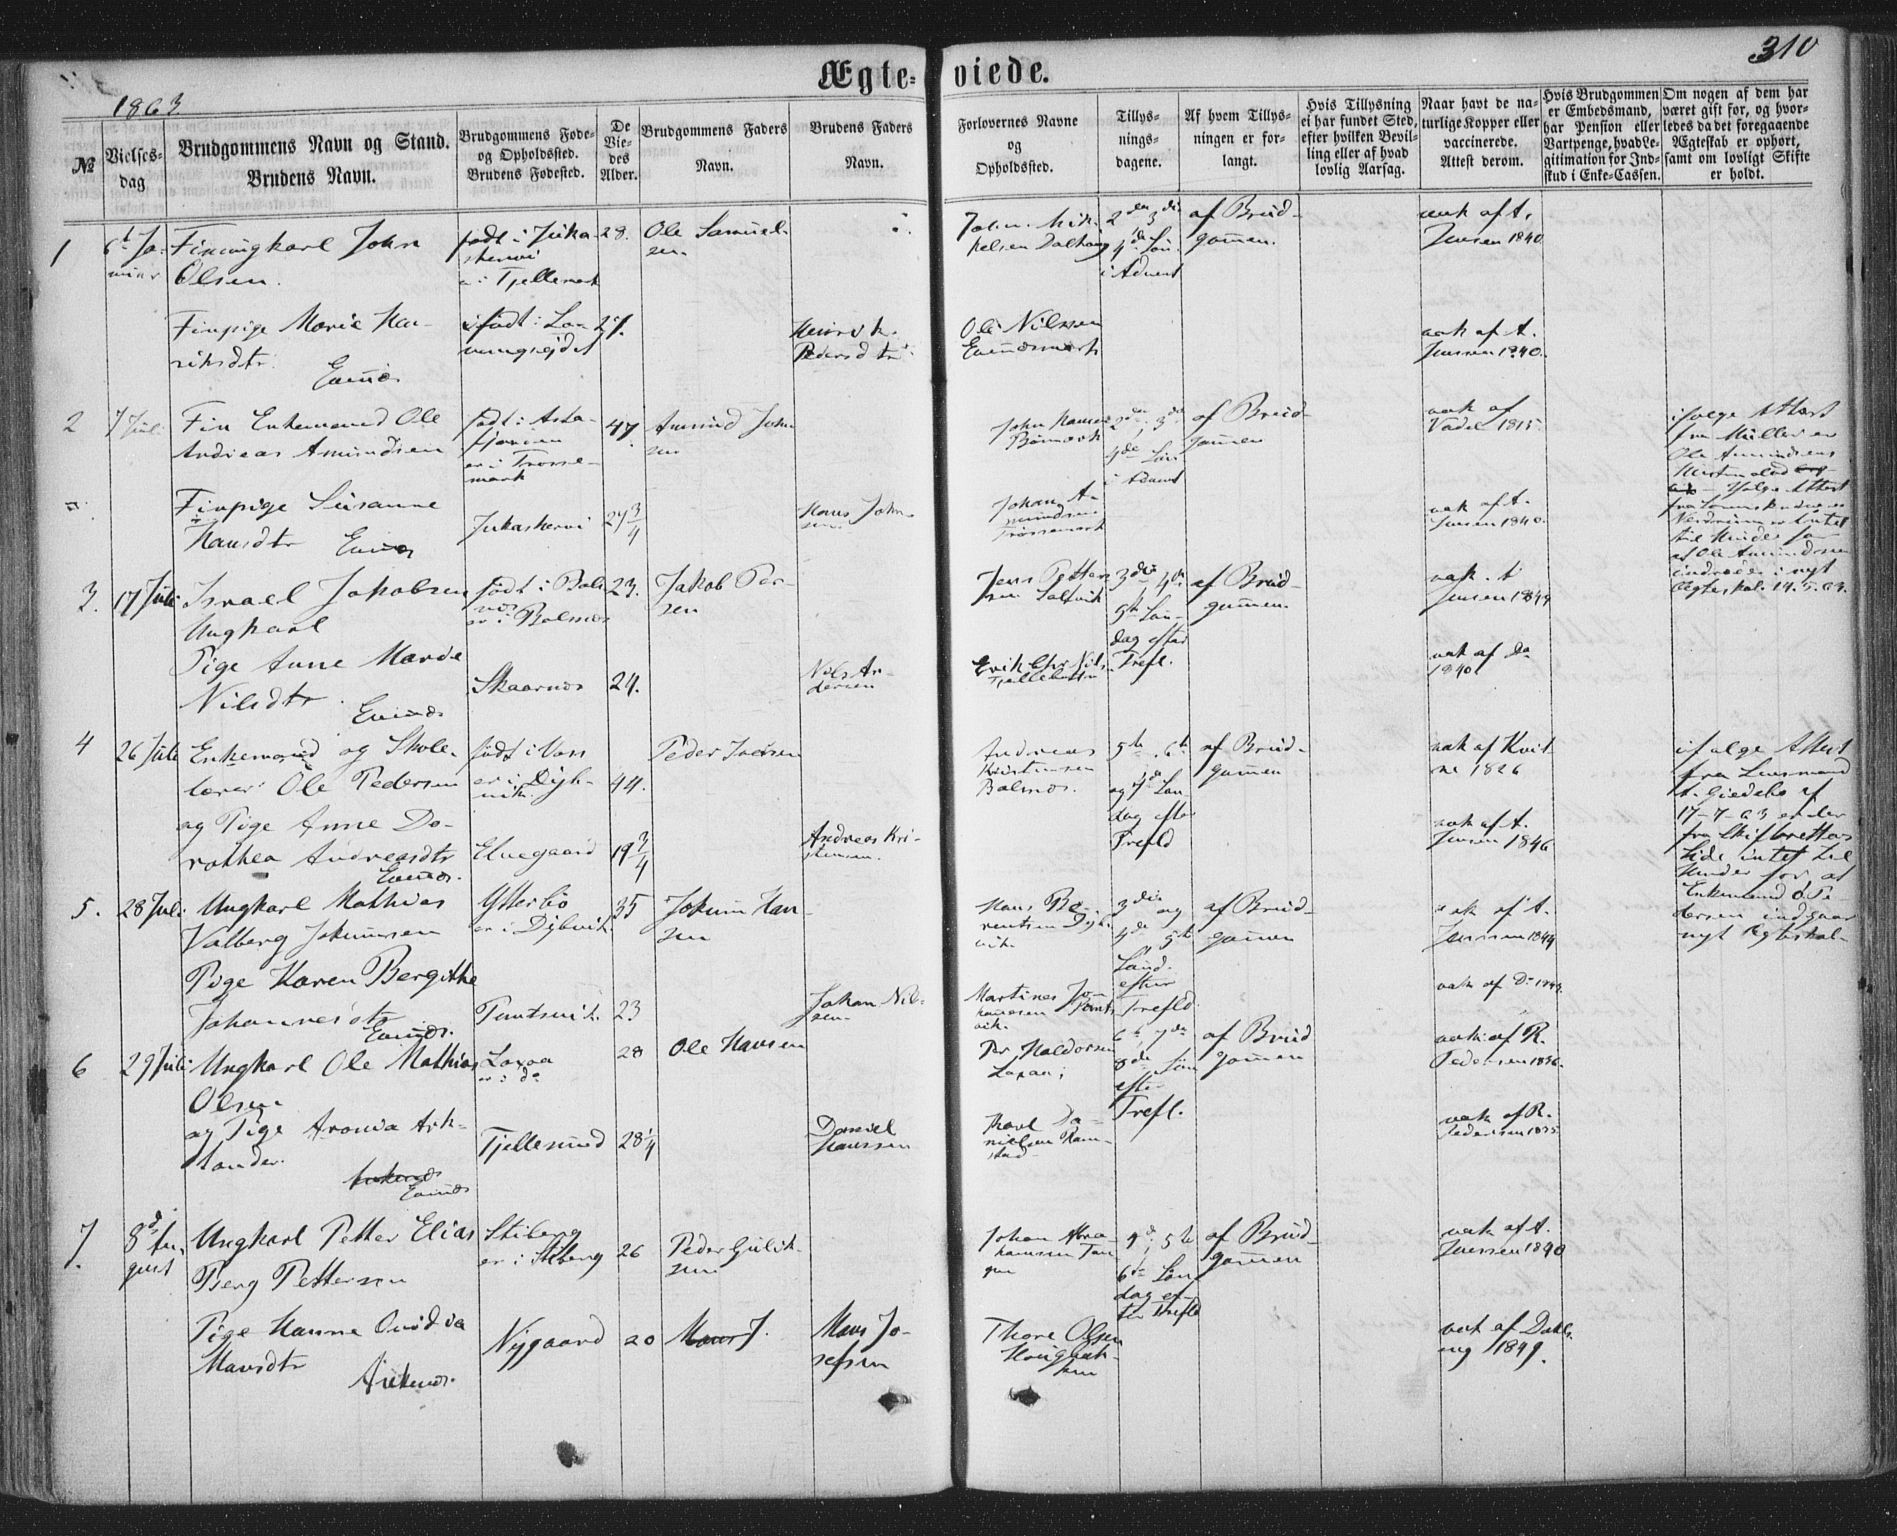 310
Ægteviede.
1863.
№
Vielsesdag
Brudgommens Navn og Stand.
Brudens Navn.
Brudgommens Fødeog Opholdssted.
Brudens Fødested.
De Viedes Alder.
Brudgommens Faders Navn.
Brudens Faders Navn.
Forlovernes Navne og Opholdssted.
Tillysningsdagene.
Af hvem Tillysningen er forlangt.
Hvis Tillysning ei har fundet Sted, efter hvilken Bevilling eller af hvad lovlig Aarsag.
Naar havt de naturlige Kopper eller vaccinerede. Attest derom.
Hvis Brudgommen er Embedsmand, har Pension eller Vartpenge, hvad Legitimation for Indskud i Enke-Cassen.
Om nogen af dem har været gift før, og hvorledes da det foregaaende Ægteskab er ophørt, samt om lovligt Skifte er holdt.
1
6t Januar
Finungkarl John
Olsen.
født i Juka-
skervi
er i Tjellemark
28.
Ole Samuel-
sen
2den 3die
4de Sön.
i Advent
af Brud-
gommen.
vak af A.
Jensen 1840
Finpige Marie Hen-
riksdtr.
Evenæs
27.
Henrik
Pedersdtr
Ole Nilssen
Evenæsmark
vak af A.
Jenssen 1840.
2
7 Juli
Fin Enkemand Ole
Andreas Amundsen
er i Trosse-
mark
47.
Amund John
sen
John Hansen
4de Sön
i Advent
af Brud-
gommen
vak af
Vadel 1815
ifølge Attest
fra Müller er
Ole Amundsens
Finpige Susanne
Hansdtr
Evenæs
Jukaskervi
27 3/4
Hans John-
sen
Johan A-
mundsen
Trossemark
vak af A.
Jensen 1840.
til Hinder for
at Ole Amundsen
indtræder i nyt
Ægteskab. 14.5.63.
3.
17 Juli
Israel Jakobsen
Ungkarl
født i Bals-
næs
er i Balsnæs
23.
Jakob Per-
sen
Jens Petter-
sen
3die 4de
5te Søn-
dag efter
Trefl.
af Brud-
gommen
vak. A
Jensen 1849
Pige Anne Marde
Nilsdtr.
Evenæs
Skaarnæs
24.
Nils An-
dersen
vak af do
1840
4
26 Juli
Enkemand og Skole-
lærer Ole Pedersen
født i Voss
er i Dyb-
vik.
44.
Peder Iversen
Andreas
Kristensen
Balsnæs.
5te 6te
og 7de Søn-
dag efter
Trefld
af Brud-
gommen
1826
ifølge Attest
fra Lensmand
17-7-63 er der
fra Skifterettens
Side intet til
Hinder for, at
Enkemand O. Pe-
dersen indgaar
nyt Ægteskab-
og Pige Anne Do-
rothea Andreasdtr
Evenæs.
Elvegaard
19 3/4
Andreas Kri-
stensen.
vak af A.
Jensen 1846
5.
28 Juli
Ungkarl Mathias
Valberg Jokumsen
Ytterbø
er i Dybvik.
35
Jokum Han-
sen
Hans Be-
rentsen Dyb-
vik.
3die og
4de 5te
Sønd.
efter
Trefld.
af Brud-
gommen
vak af A.
Jenssen 1849
Pige Karen Bergithe
Johannesdtr
Evenæs.
23
Johan Nil-
sen
Martines Jo-
hansen
vak af Do
6
29 Juli
Ungkarl Ole Mathias
Olsen
Laxaa
er i do
28
Ole Hansen
Per Haldorsen
Laxaa;
6te, 7de
8de Søn
efter
Trefl.
af Brud
gommen
vak af R.
Pedersen 1836.
og Pige Aronia Ark-
lander.
Evenæs
Tjellesund
28 1/4
Daniel
Hanssen
Karl Da-
nielsen Ram-
stad
vak af R.
Pedersen 1835
7.
8de Au-
gust
Ungkarl Petter Elias
Berg Pettersen
Stiberg
er i Stiberg
26
Peder Gulik-
sen
Johan Abra-
hamsen Tan-
gen
4de, 5te
6te Søn-
dag ef-
ter Trefld
af Brud-
gommen
vak af A.
Jenssen 1840
Pige Hanne Ovidia
Hansdtr
Ankenæs.
Nygaard
20
Hans J.
Hans Jo-
sefsen
Thore Olsen
vak af Dahl-
1849.